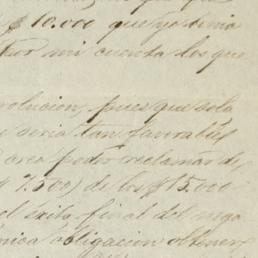 $10.000 que yo
por mi cuenta los que
olucion, pues que solo
seria tan favorable
creo poder reclamar de
$7.500) de los $15.000
el exito final del nego
nica obligacion obtener